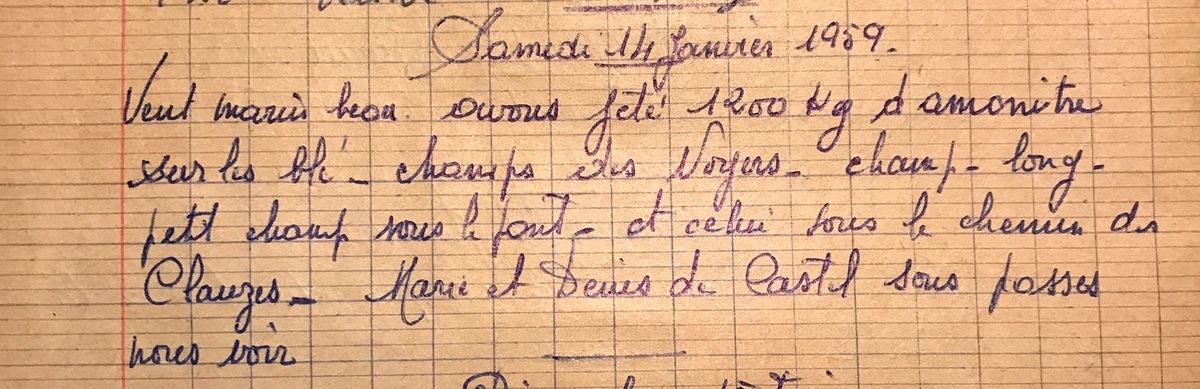 Samedi 14 Janvier 1959.
Vent marin beau. avons jeté 1200 Kg d'amonitre
sur les blé - champs des Noyers - champ - long -
petit champ sous le pont - et celui sous le chemin des
Clauzes - Marie et Denis de Castel sons passés
nous voir